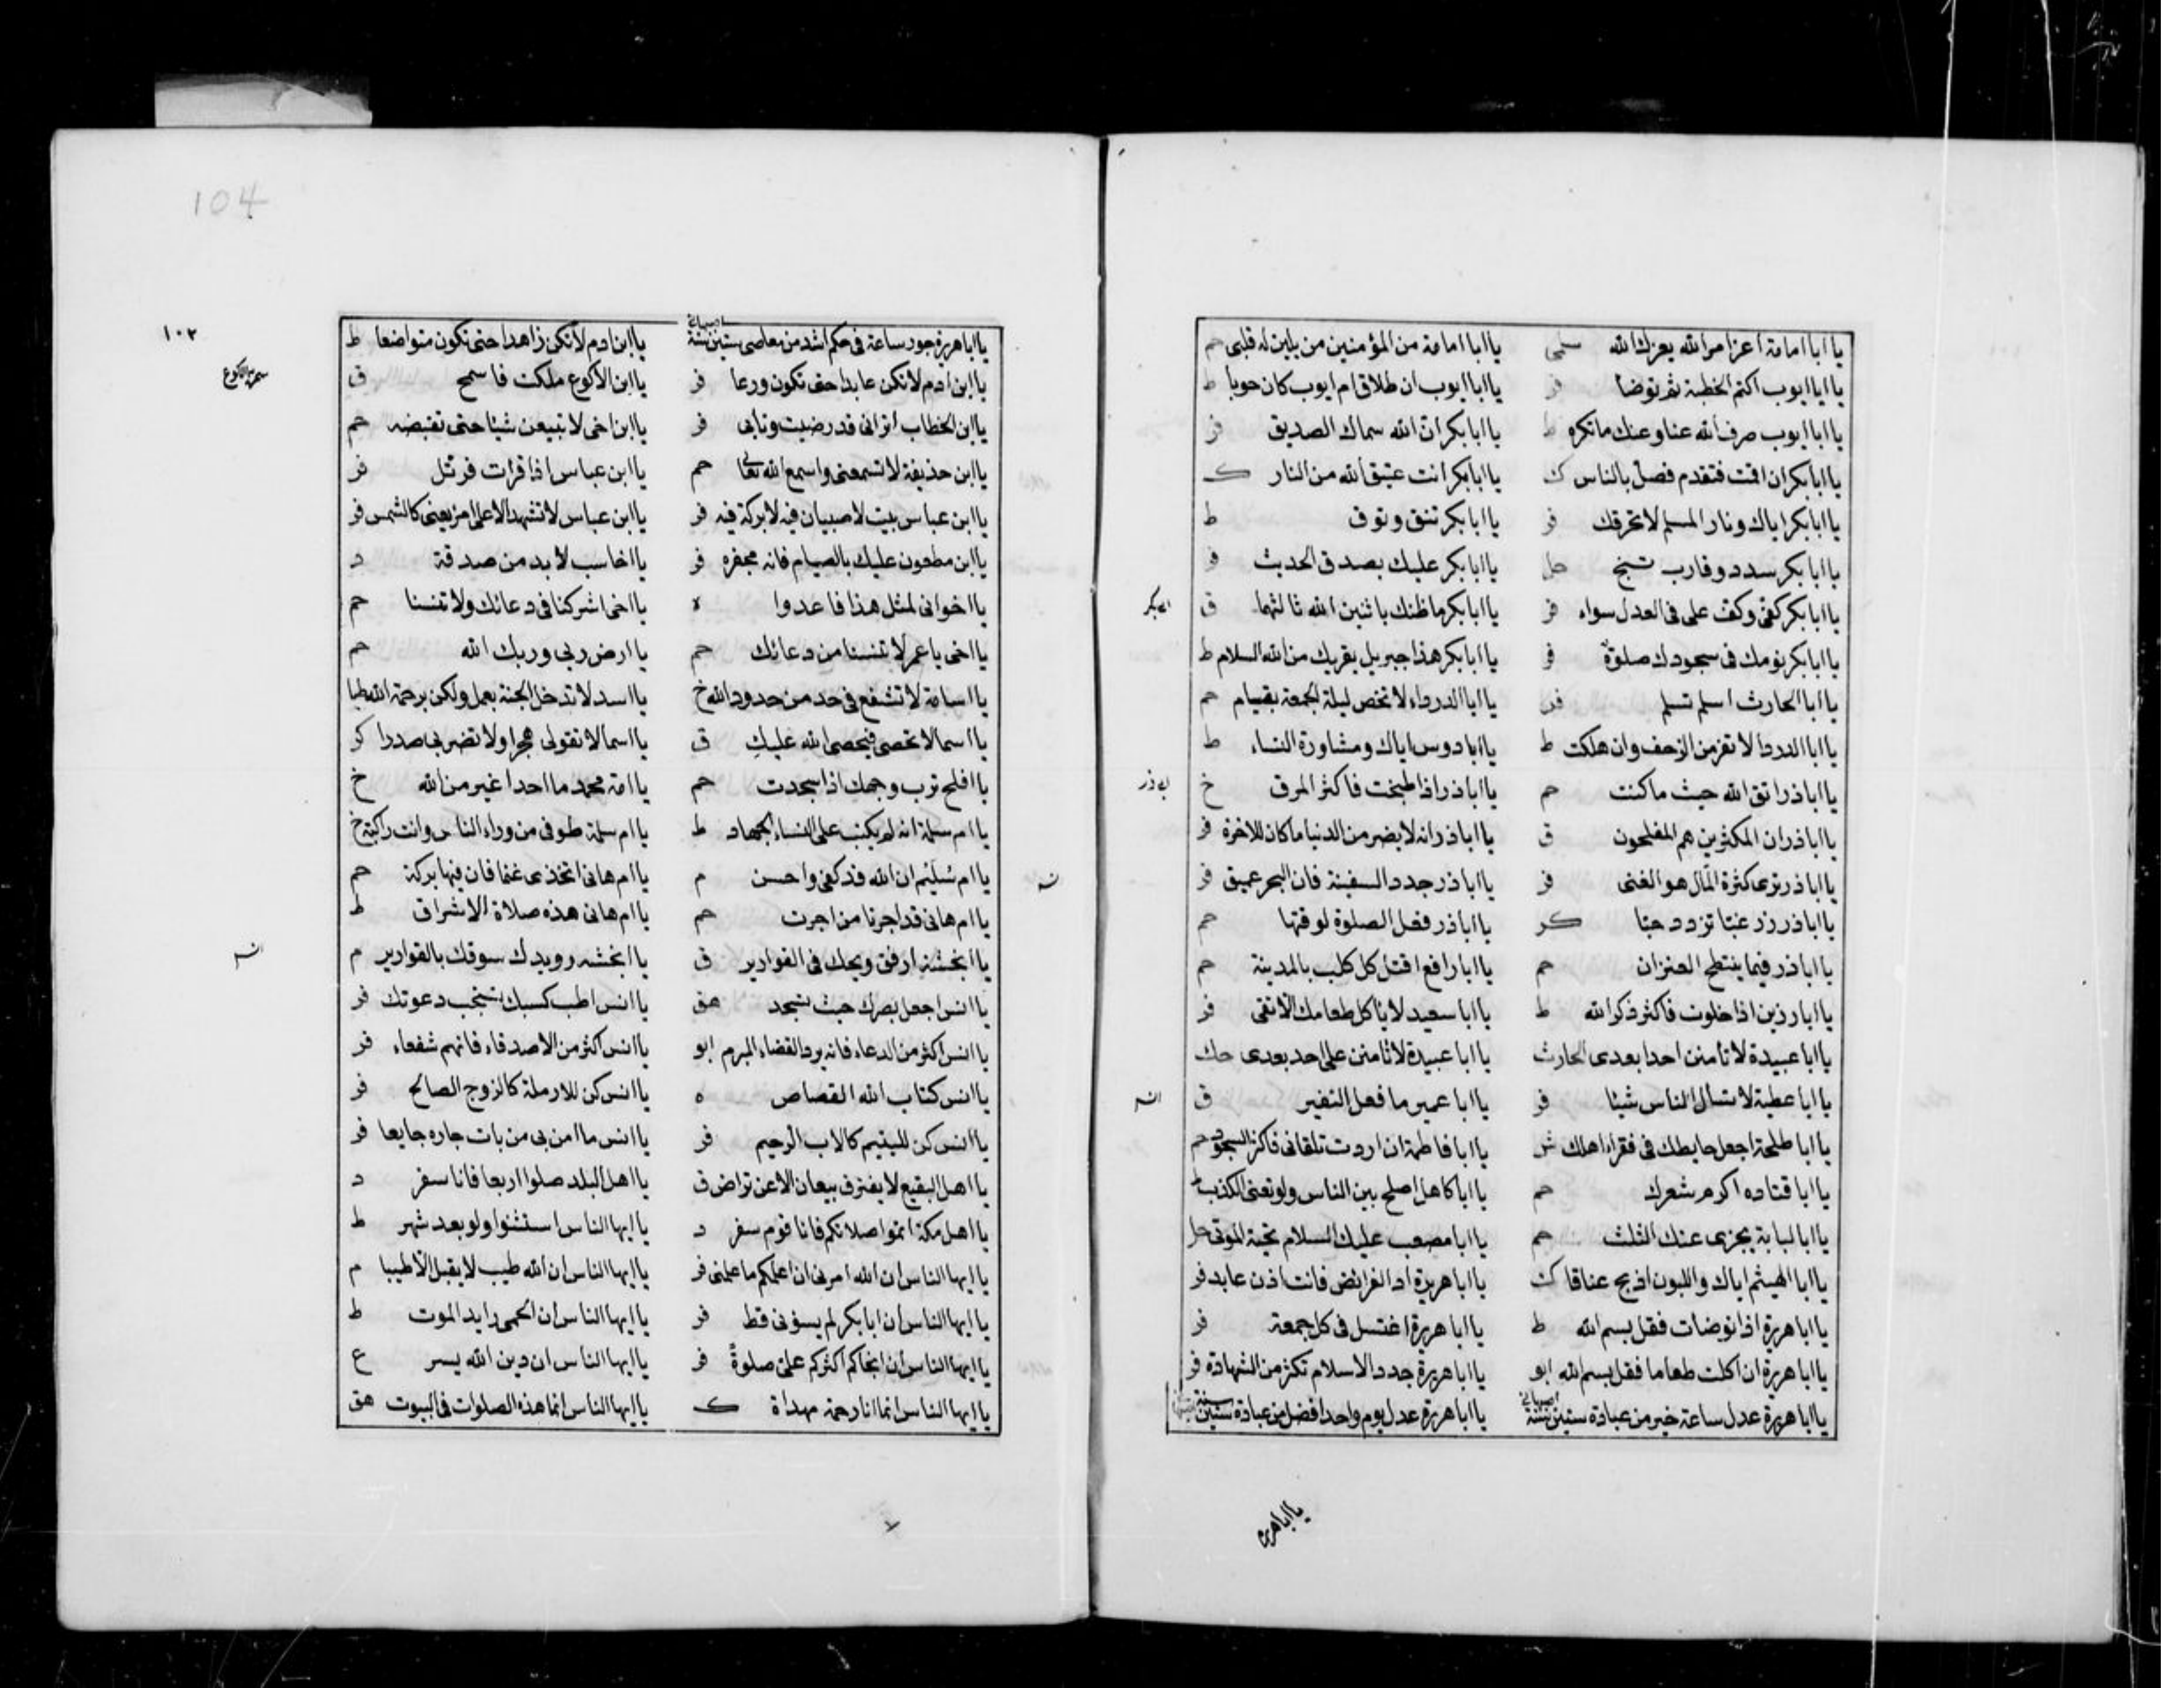 يا ابا امامة اعز امر الله يعزك الله
يا ابا امامة من المؤمنين من يلين له قلبى حم
يا ابا ايوب اكتم الخطبة ثم توضا فر
يا ابا ايوب ان طلاق ام ايوب كان حوبا ط
يا ابا ايوب صرف الله عنا وعنك ما تكره ط
يا ابا بكر ان الله سماك الصديق فر
يا ابا بكر ان اقمت فتقدم فصل بالناس ك
يا ابا بكر انت عتيق الله من النار ك
يا ابا بكر اياك ونار المسلم لا تحرقك فر
يا ابا بكر تنق وتوق ط
يا ابا بكر سدد وقارب تنج حل
يا ابا بكر عليك بصدق الحديث فر
يا ابا بكر كفى وكف على فى العدل سواء فر
يا ابا بكر ما ظنك باثنين الله ثالثهما ق
ابى بكر
يا ابا بكر نومك فى سجودك صلوة فر
يا ابا بكر هذا جبريل يقريك من الله السلام ط
يا ابا الحارث اسلم تسلم فر
يا ابا الدرداء لا تخص ليلة الجمعة بقيام حم
يا ابا الدردا لا تفر من الزحف وان هلكت ط
يا ابا دوس اياك ومشاورة النساء ط
يا ابا ذر اتق الله حيث ما كنت حم
يا ابا ذر اذا طبخت فاكثر المرق خ
ابى ذر
يا ابا ذر ان المكثرين هم المفلحون ق
يا ابا ذر انه لا يضر من الدنيا ما كان للاخرة فر
يا ابا ذر ترى كثرة المال هو الغنى فر
يا ابا ذر جدد السفينة فان البحر عميق فر
يا ابا ذر زر غبا تزدد حبا كر
يا ابا ذر فصل الصلوة لوقتها حم
يا ابا ذر فيما ينتطح العنزان حم
يا ابا رافع اقتل كل كلب بالمدينة حم
يا ابا رزين اذا خلوت فاكثر ذكر الله ط
يا ابا سعيد لا ياكل طعامك الا تقى فر
يا ابا عبيدة لا تامنن احدا بعدى الحارث
يا ابا عبيدة لا تامنن على احد بعدى حك
يا ابا عطية لا تسال الناس شيئا فر
يا ابا عمير ما فعل النغير ق
يا ابا طلحة اجعل حايطك فى فقراء اهلك ش
يا ابا فاطمة ان اردت تلقانى فاكثر السجود حم
يا ابا قتاده اكرم شعرك حم
يا ابا كاهل اصلح بين الناس ولو تعنى الكذب ط
يا ابا لبابة يجزى عنك الثلث حم
يا ابا مصعب عليك السلام تحية الموتى حل
يا ابا الهيثم اياك واللبون اذبح عناقا ك
يا ابا هريرة اد الفرائض فانت اذن عابد فر
يا ابا هريرة اذا توضات فقل بسم الله ط
يا ابا هريرة اغتسل فى كل جمعة فر
يا ابا هريرة ان اكلت طعاما فقل بسم الله ابو
يا ابا هريرة جدد الاسلام تكثر من الشهادة فر
يا ابا هريرة عدل ساعة خير من عبادة ستين سنة
يا ابا هريرة عدل يوم واحد افضل من عبادة ستين سنة
يا ابا هريره
104
١٠٣
يا ابا هريرة جور ساعة فى حكم اشد من معاصى ستين سنة
يا ابن ادم لا تكن زاهدا حتى تكون متواضعا ط
يا ابن ادم لا تكن عابدا حتى تكون ورعا فر
يا ابن الاكوع ملكت فاسمح ق
يا ابن الخطاب اترانى قد رضيت وتأبى فر
يا ابن اخى لا تبيعن شيئا حتى تقبضه حم
يا ابن حذيفة لا تسمعنى واسمع الله تعالى حم
يا ابن عباس اذا قرات فرتل فر
يا ابن عباس بيت لا صبيان فيه لا بركة فيه فر
يا ابن عباس لا تشهد الا على امر يعنى كالشمس فر
يا ابن مظعون عليك بالصيام فانه مجفره فر
يا اخا سب لا بد من صدقة د
يا اخوانى لمثل هذا فاعدوا ه
يا اخى اشركنا فى دعائك ولا تنسنا حم
يا اخى يا عمر لا تنسنا من دعائك حم
يا ارض ربى وربك الله حم
يا اسامة لا تشفع فى حد من حدود الله خ
يا اسد لا تدخل الجنة بعمل ولكن برحمة الله طبا
يا اسما لا تحصى فيحصى الله عليك ق
يا اسما لا تقولى هجرا ولا تضربى صدرا كر
يا افلح ترب وجهك اذا سجدت حم
يا امة محمد ما احد اغير من الله خ
يا ام سلمة انه لم يكتب على النساء الجهاد ط
يا ام سلمة طوفى من وراء الناس وانت راكبة خ
يا ام سليم ان الله قد كفى واحسن م
يا ام هانى اتخذى غنما فان فيها بركة حم
يا ام هانى قد اجرنا من اجرت حم
يا ام هانى هذه صلاة الاشراق ط
يا انجشه ارفق ويحك فى القوارير ق
يا انجشه رويدك سوقك بالقوارير م
يا انس اجعل بصرك حيث تسجد هق
يا انس اطب كسبك تستجب دعوتك فر
يا انس اكثر من الدعاء فانه يرد القضاء المبرم ابو
يا انس اكثر من الاصدقاء فانهم شفعاء فر
يا انس كتاب الله القصاص ه
يا انس كن للارملة كالزوج الصالح فر
يا انس كن لليتيم كالاب الرحيم فر
يا انس ما امن بى من بات جاره جايعا فر
يا اهل البقيع لا يفترق بيعان الا عن تراض ق
يا اهل البلد صلوا اربعا فانا سفر د
يا اهل مكة اتموا صلاتكم فانا قوم سفر د
يا ايها الناس استثنوا ولو بعد شهر ط
يا ايها الناس ان الله امرنى ان اعلمكم ما علمنى فر
يا ايها الناس ان الله طيب لا يقبل الا طيبا م
يا ايها الناس ان ابا بكر لم يسؤنى قط فر
يا ايها الناس ان الحمى رايد الموت ط
يا ايها الناس ان انجاكم اكثركم على صلوة فر
يا ايها الناس ان دين الله يسر ع
يا ايها الناس انما انا رحمة مهداة ك
يا ايها الناس انما هذه الصلوات فى البيوت هق